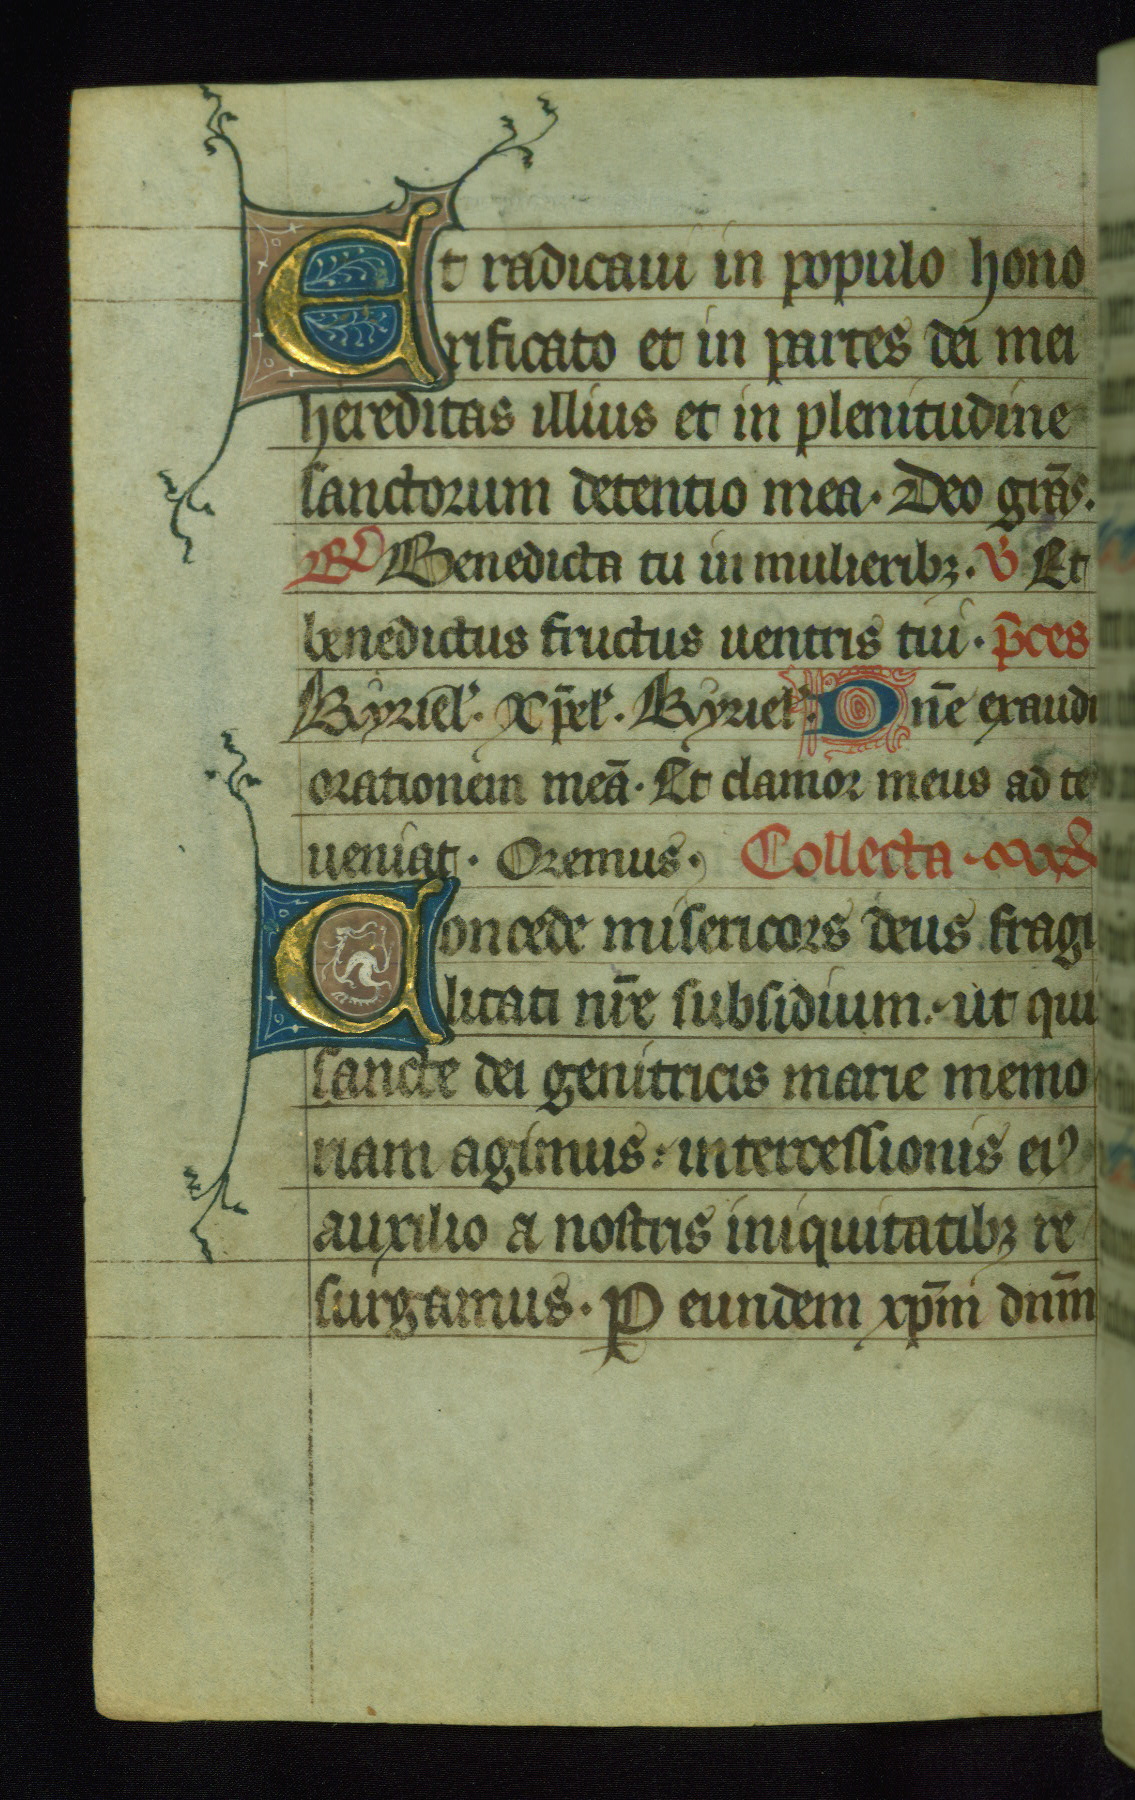 Et radicaui in populo hono
rificato et in partes dei mei
hereditas illius et in plenitudine
sanctorum detentio mea. Deo grãs.
R Benedicta tu in mulieribꝫ. V Et
benedictus fructus uentris tui. p̃ces
Kyriel̕. Xp̃el̕. Kyriel̕. Dñe exaudi
orationem meã. Et clamor meus ad te
ueniat. Oremus. Collecta
Concede misericors deus fragi
litati nr̃e subsidium. ut qui
sancte dei genitricis marie memo
riam agimus: intercessionis eiꝰ
auxilio a nostris iniquitatibꝫ re
surgamus. P eundem xp̃m dnm̃